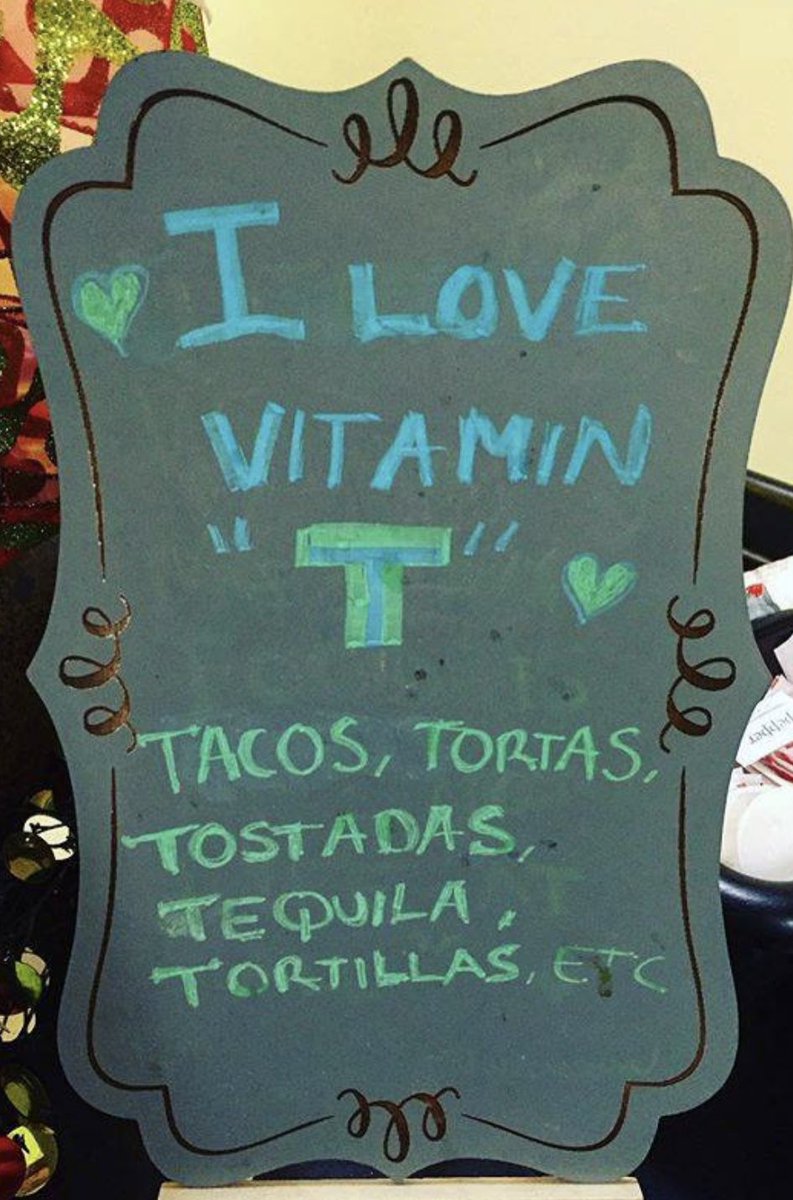 I LOVE
VITAMIN
"T"
TACOS, TORTAS,
TOSTADAS,
TEQUILA,
TORTILLAS, ETC
pepper